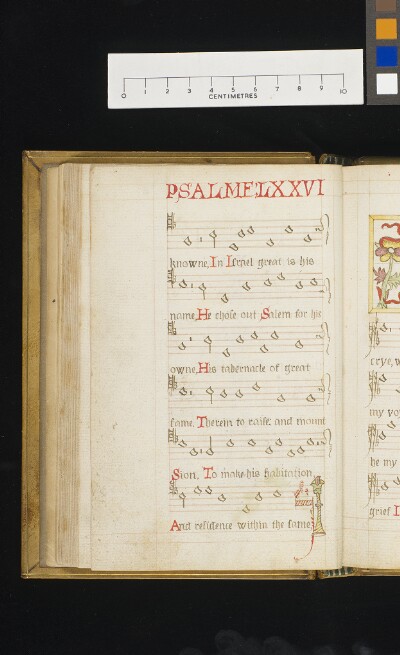 0 1 2 3 4 5 6 7 8 9 10
CENTIMETRES
PSALME LXXVI
knowne, In Israel great is his
name, He chose out Salem for his
owne, His tabernacle of great
fame, Therein to raise and mount
Sion, To make his habitation,
And residence within the same.
crye,
my
he my
grief I